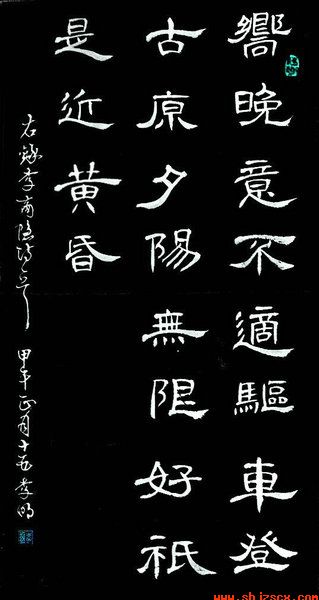 嚮晚意不適驅車登
古原夕陽無限好祇
是近黄昏
右錄李商隱詩一首 甲午正月十五